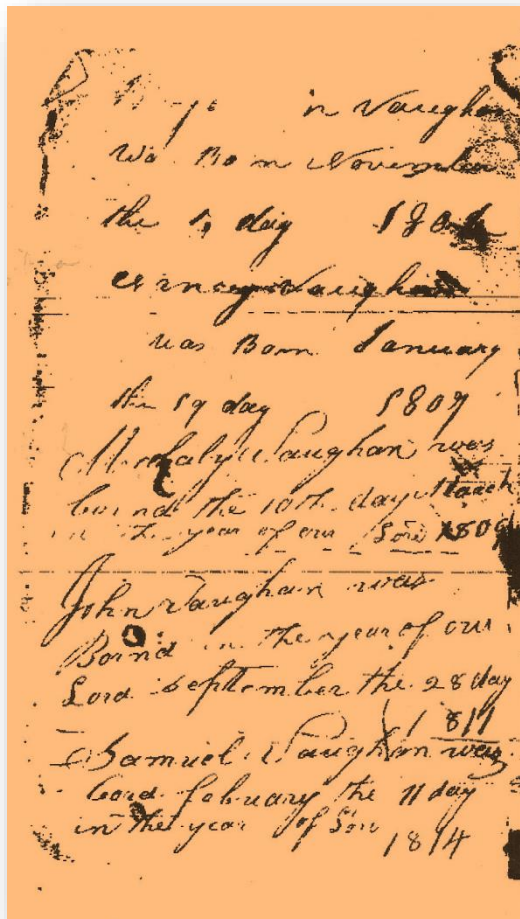 n Vaughan
Wa Born November
the day
Vaughan
was Born January
the 19 day 1807
Mahaly Vaughan was
bornd the 10th day March
in the year of our Lord
John Vaughan was
Bornd in the year of our
Lord September the 28 day
1811
Samuel Vaughan was
bornd february the 11 day
in the year of Lord
1814